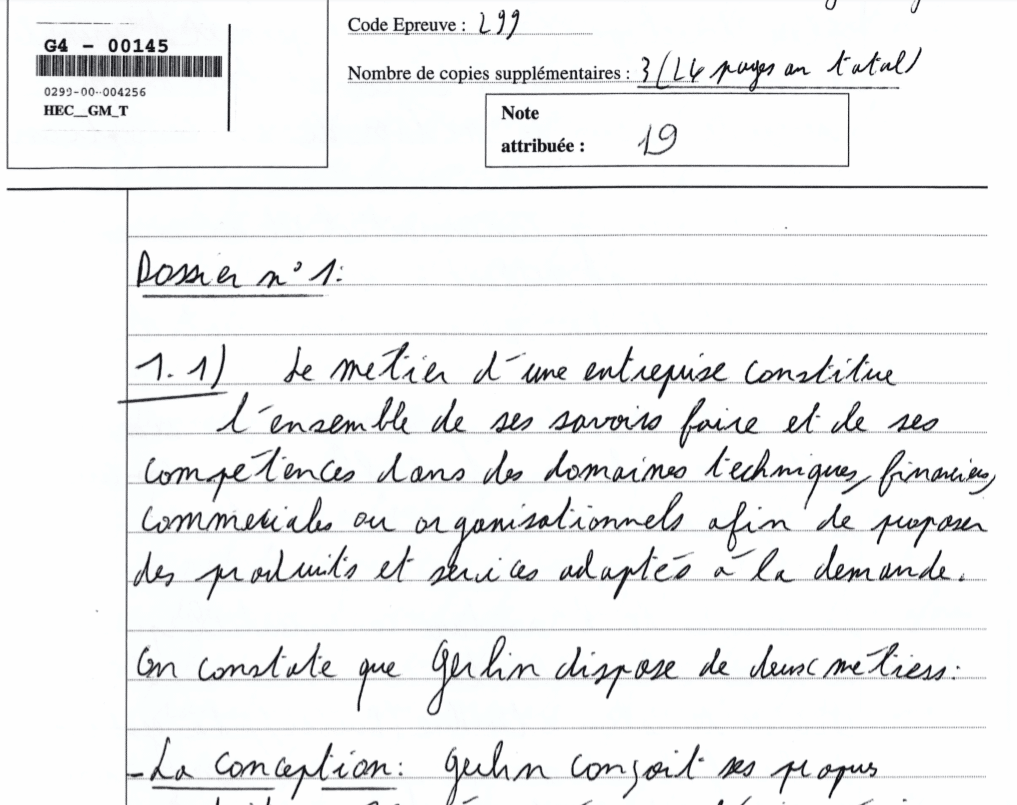 G4 - 00145
0299-00--004256
HEC__GM_T
Code Epreuve : 299
Nombre de copies supplémentaires : 3 (24 pages au total)
Note
attribuée : 19
Dossier n° 1:
1.1) Le métier d'une entreprise constitue
l'ensemble de ses savoirs faire et de ses
compétences dans des domaines techniques, financiers,
commerciales ou organisationnels afin de proposer
des produits et services adaptés à la demande.
On constate que Gerlin dispose de deux métiers:
- La conception: Gerlin conçoit ses propres